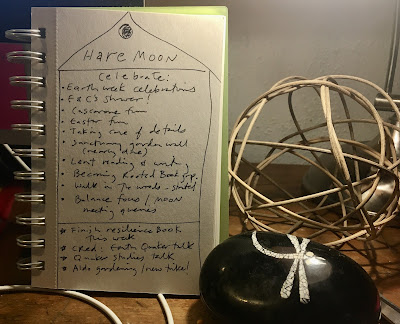 Hare Moon
Celebrate:
• Earth week celebrations
• E&C's shower!
• Cascarone fun
• Easter fun
• Taking care of details
• Sanctuary garden wall
(nearly done)
• Lent reading & work
• Becoming Rooted Book grp.
• Walk in the woods - started
• Balance focus / moon
meeting queries
* Finish resilience Book
this week
* Cred: Earth Quaker talk
* Quaker studies talk
* Aldo gardening / new trike!